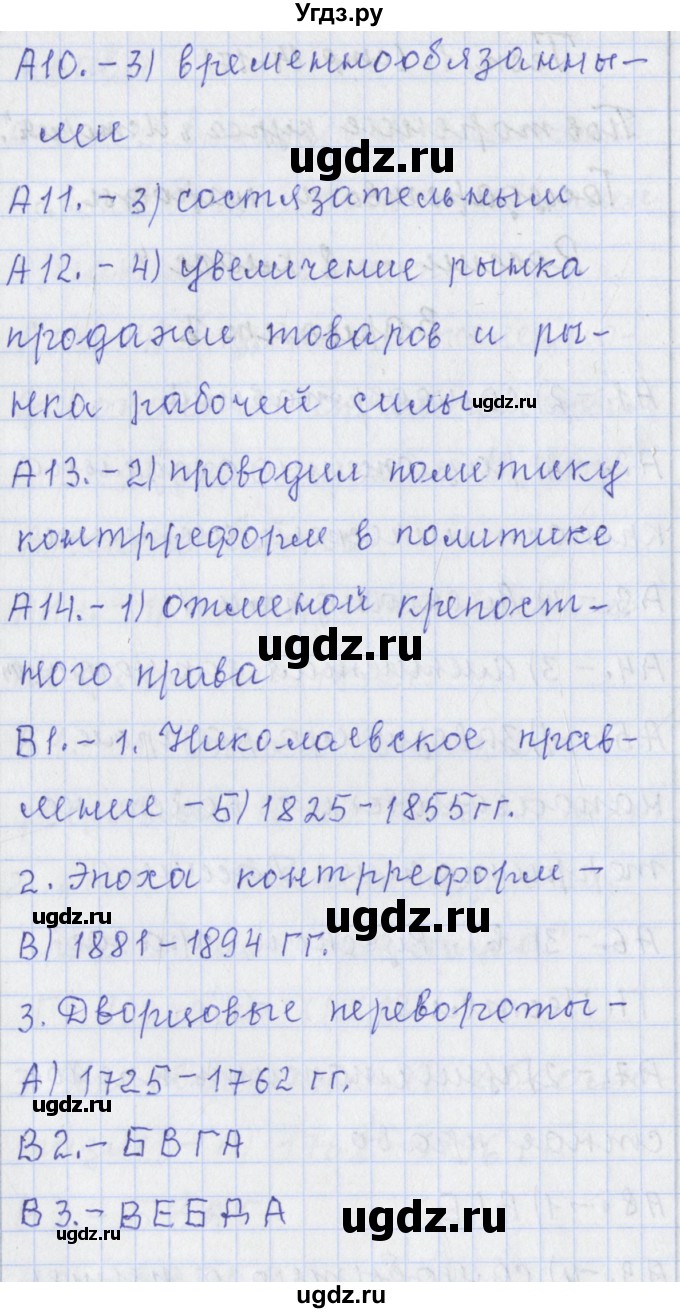 Угдз.ру
А10. - 3) временнообязанны-
ми
ugdz.ru
А11. - 3) состязательным
А12. - 4) увеличение рынка
продажи товаров и ры-
нка рабочей силы
ugdz.ru
А13. - 2) проводил политику
контрреформ в политике
А14. - 1) отменой крепост-
ugdz.ru
ного права
В1. - 1. Николаевское прав-
ление - Б) 1825-1855гг.
2. Эпоха контрреформ -
ugdz.ru
ugdz.ru
В) 1881-1894 гг.
3. Дворцовые перевороты -
А) 1725-1762 гг.
ugdz.ru
В2. - БВГА
В3. - ВЕБДА
ugdz.ru
ugdz.ru
ugdz.ru